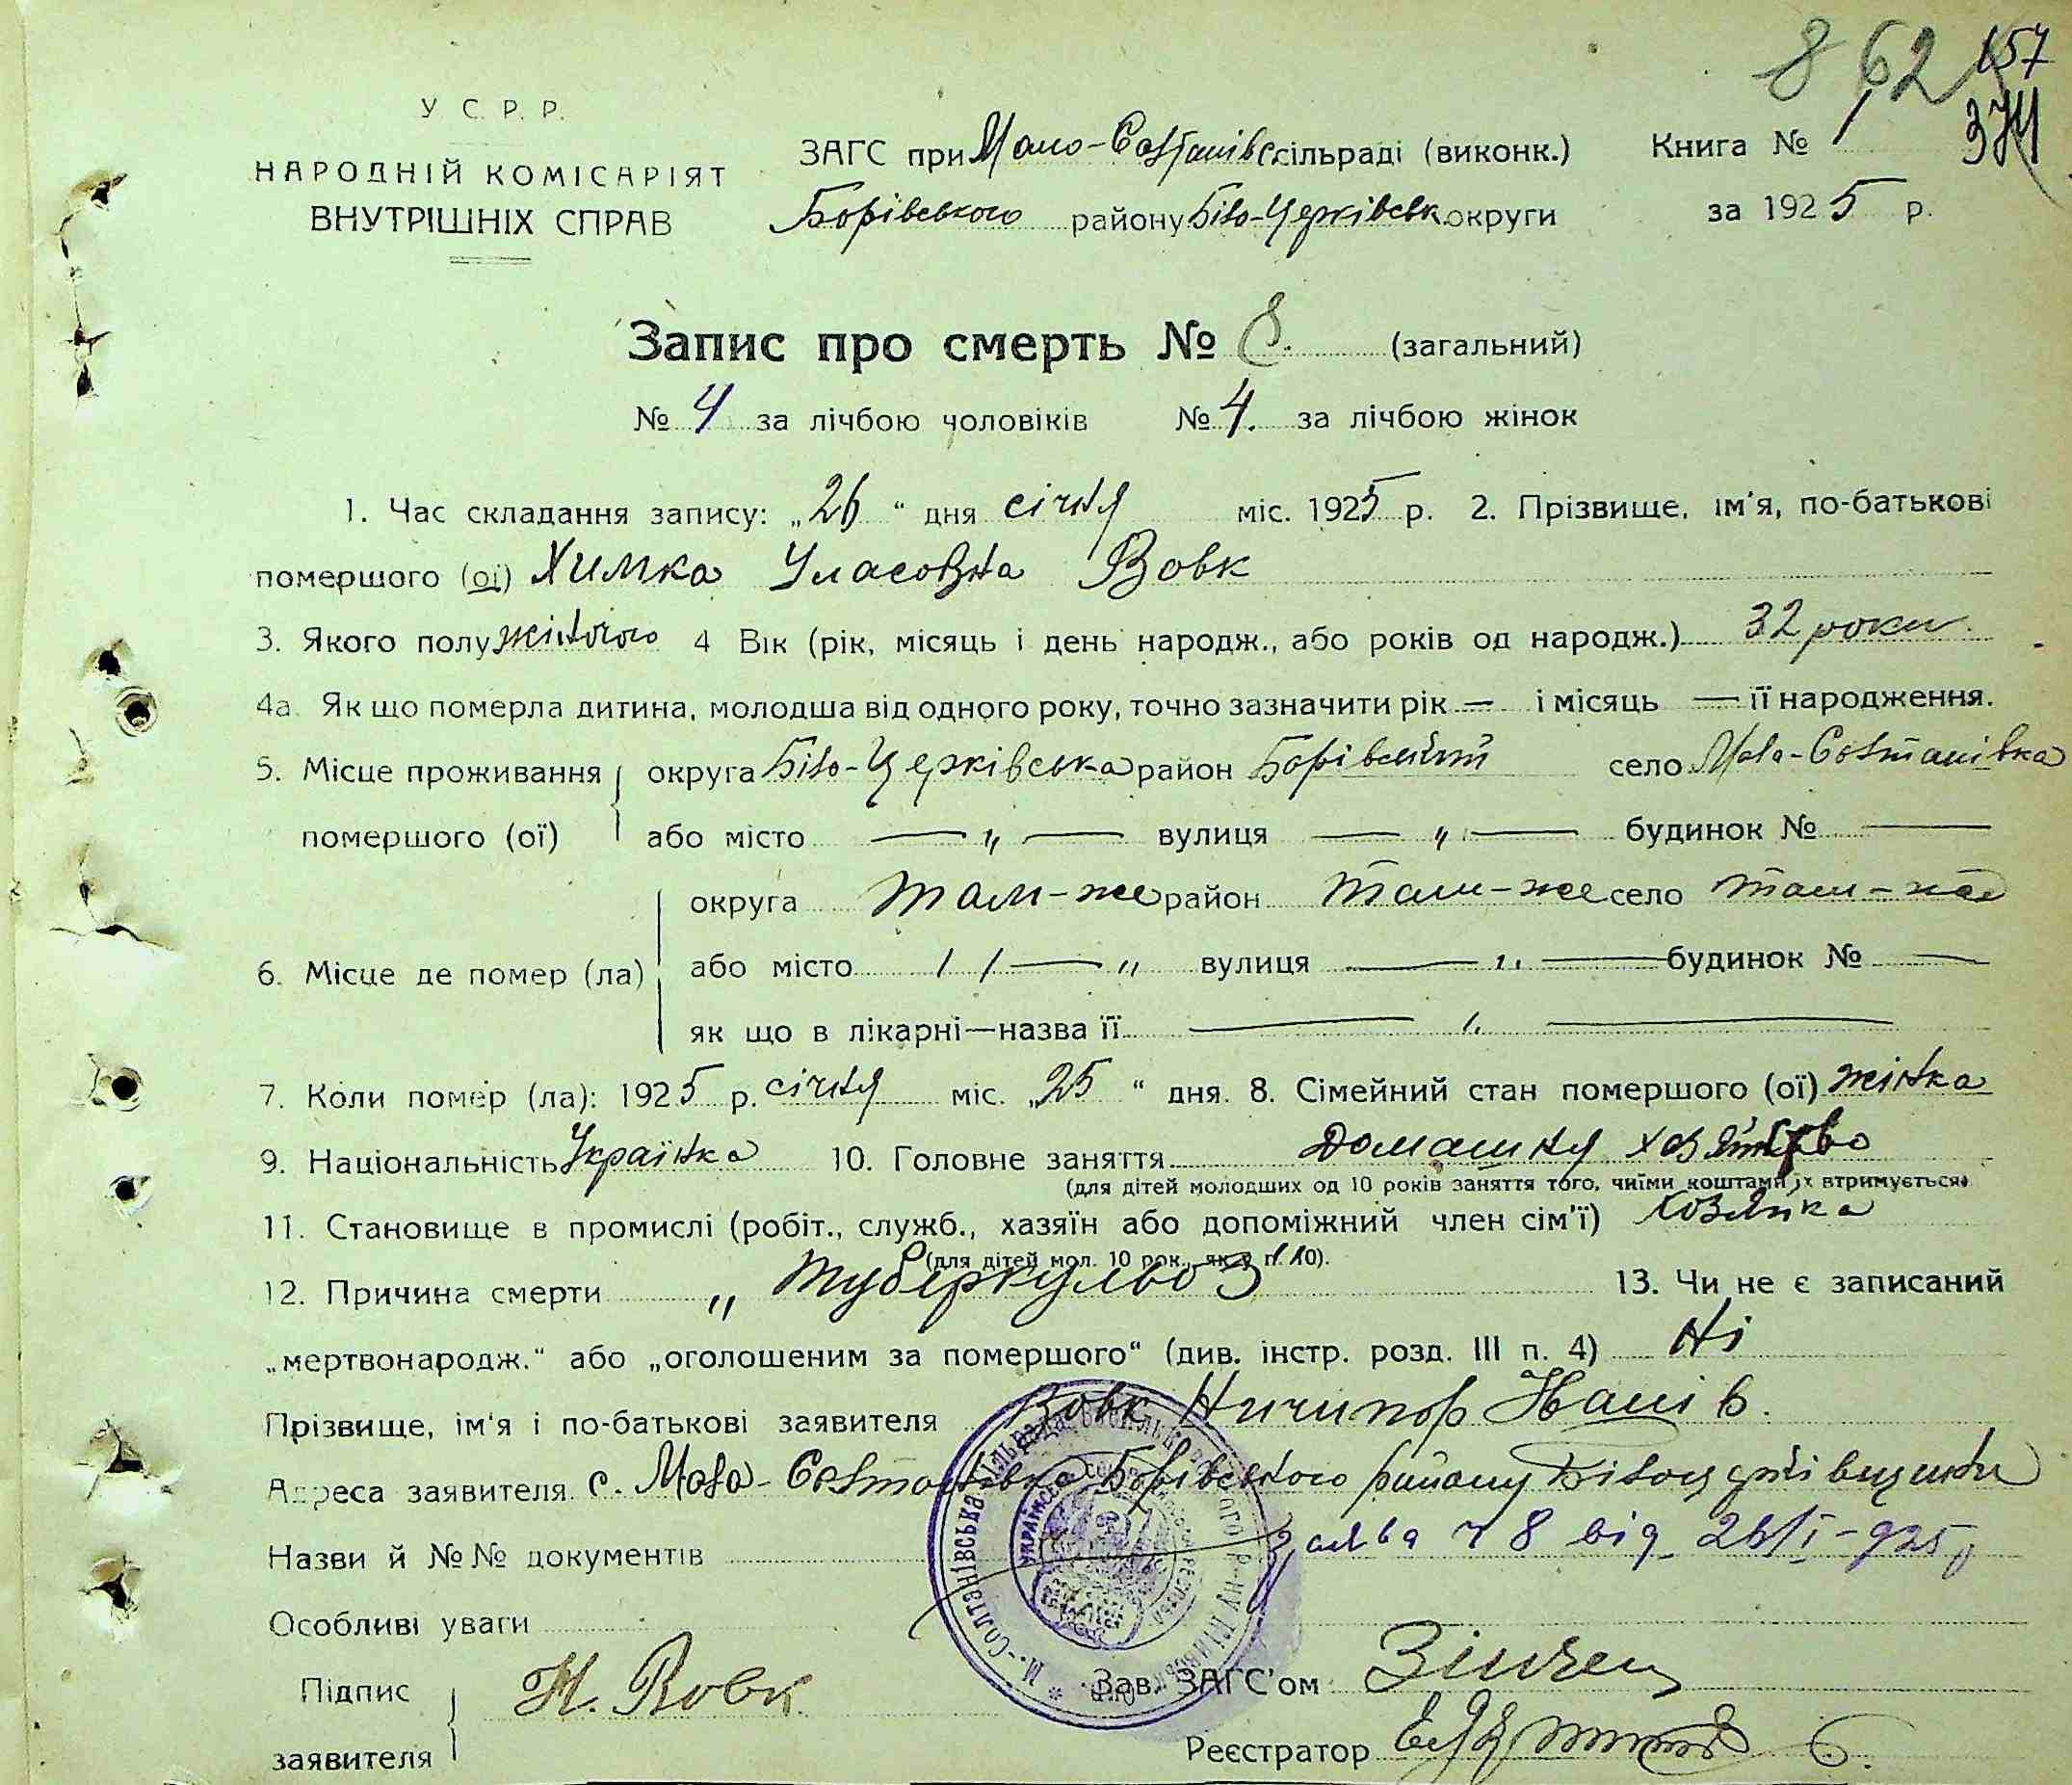 862 157
374
У С. Р. Р.
НАРОДНІЙ КОМІСАРІЯТ
ВНУТРІШНІХ СПРАВ
ЗАГС при Мало-Солтанівс. сільраді (виконк.)
Борівського району Біло-Церківськ. округи
Книга № 1
за 1925 р.
Запис про смерть № 8. (загальний)
№ 4 за лічбою чоловіків № 4. за лічбою жінок
1. Час складання запису: „26“ дня січня міс. 1925 р. 2. Прізвище, ім'я, по-батькові
помершого (ої) Химка Уласовна Вовк
3. Якого полу жіночого 4 Вік (рік, місяць і день народж., або років од народж.) 32 роки.
4а. Як що померла дитина, молодша від одного року, точно зазначити рік — і місяць — її народження.
5. Місце проживання округа Біло-Церківська район Борівський село Мала-Солтанівка
помершого (ої) або місто — „ — вулиця — „ — будинок № —
округа там-же район там-же село там-же
6. Місце де помер (ла) або місто — „ вулиця — „ — будинок № —
як що в лікарні—назва її —
7. Коли помер (ла): 1925 р. січня міс. „25“ дня. 8. Сімейний стан помершого (ої) жінка
9. Національність Українка 10. Головне заняття домашня хозяйство
(для дітей молодших од 10 років заняття того, чиїми коштами їх втримується)
11. Становище в промислі (робіт., служб., хазяїн або допоміжний член сім'ї) хозяйка
(для дітей мол. 10 рок., як у п. 10).
12. Причина смерти „ туберкульоз 13. Чи не є записаний
„мертвонародж.“ або „оголошеним за помершого“ (див. інстр. розд. III п. 4) Ні
Прізвище, ім'я і по-батькові заявителя Вовк Ничипор Іванів.
Адреса заявителя с. Мала-Солтанівка Борівського району Білоцерківщини
Назви й №№ документів заява ч 8 від 26/I-925 р
Особливі уваги
Підпис заявителя Н. Вовк
Зав. ЗАГС'ом
Реєстратор